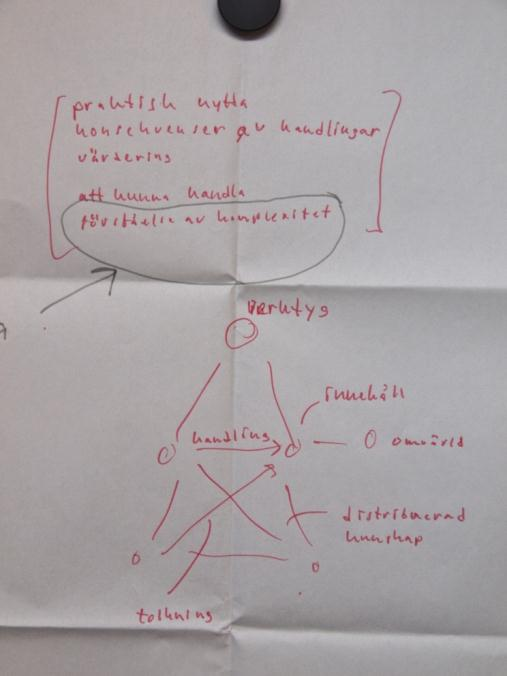 praktisk nytta
konsekvenser av handlingar
värdering
att kunna handla
förståelse av komplexitet
verktyg
innehåll
handling
omvärld
distribuerad
kunskap
tolkning